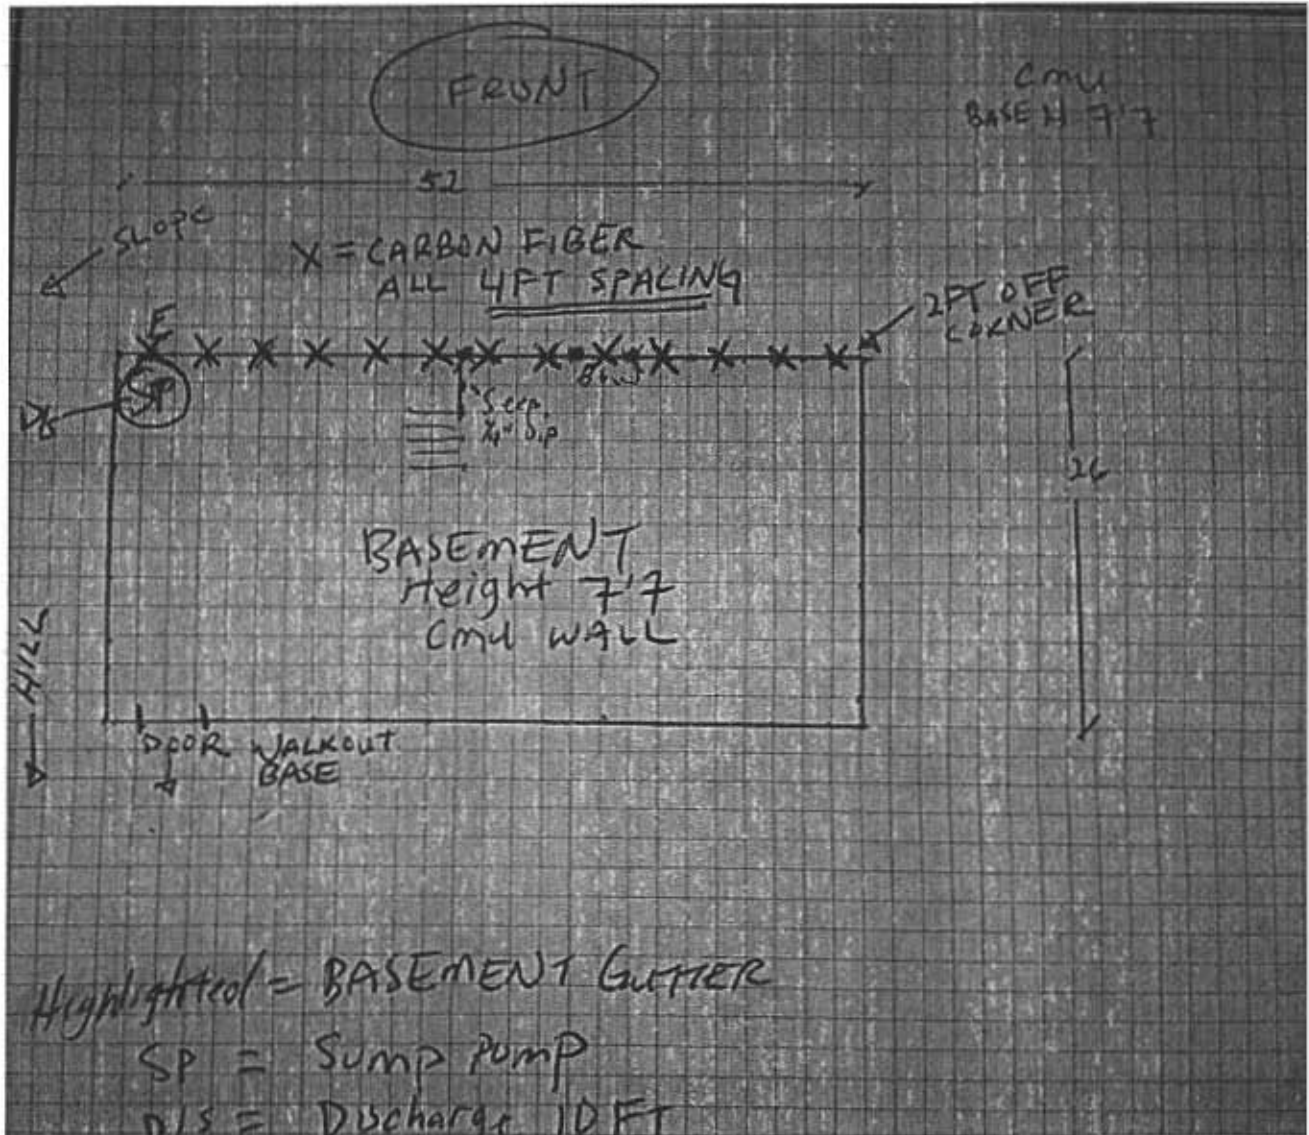 FRONT
Cmu
BASE H 7'7
52
SLOPE
X = CARBON FIBER
ALL 4FT SPACING
2FT OFF
CORNER
E
X X X X X X X X X X X X X
SP
26
BASEMENT
Height 7'7
Cmu WALL
HILL
DOOR WALKOUT
BASE
Highlighted = BASEMENT GUTTER
SP = Sump Pump
D/S = Discharge 10 FT